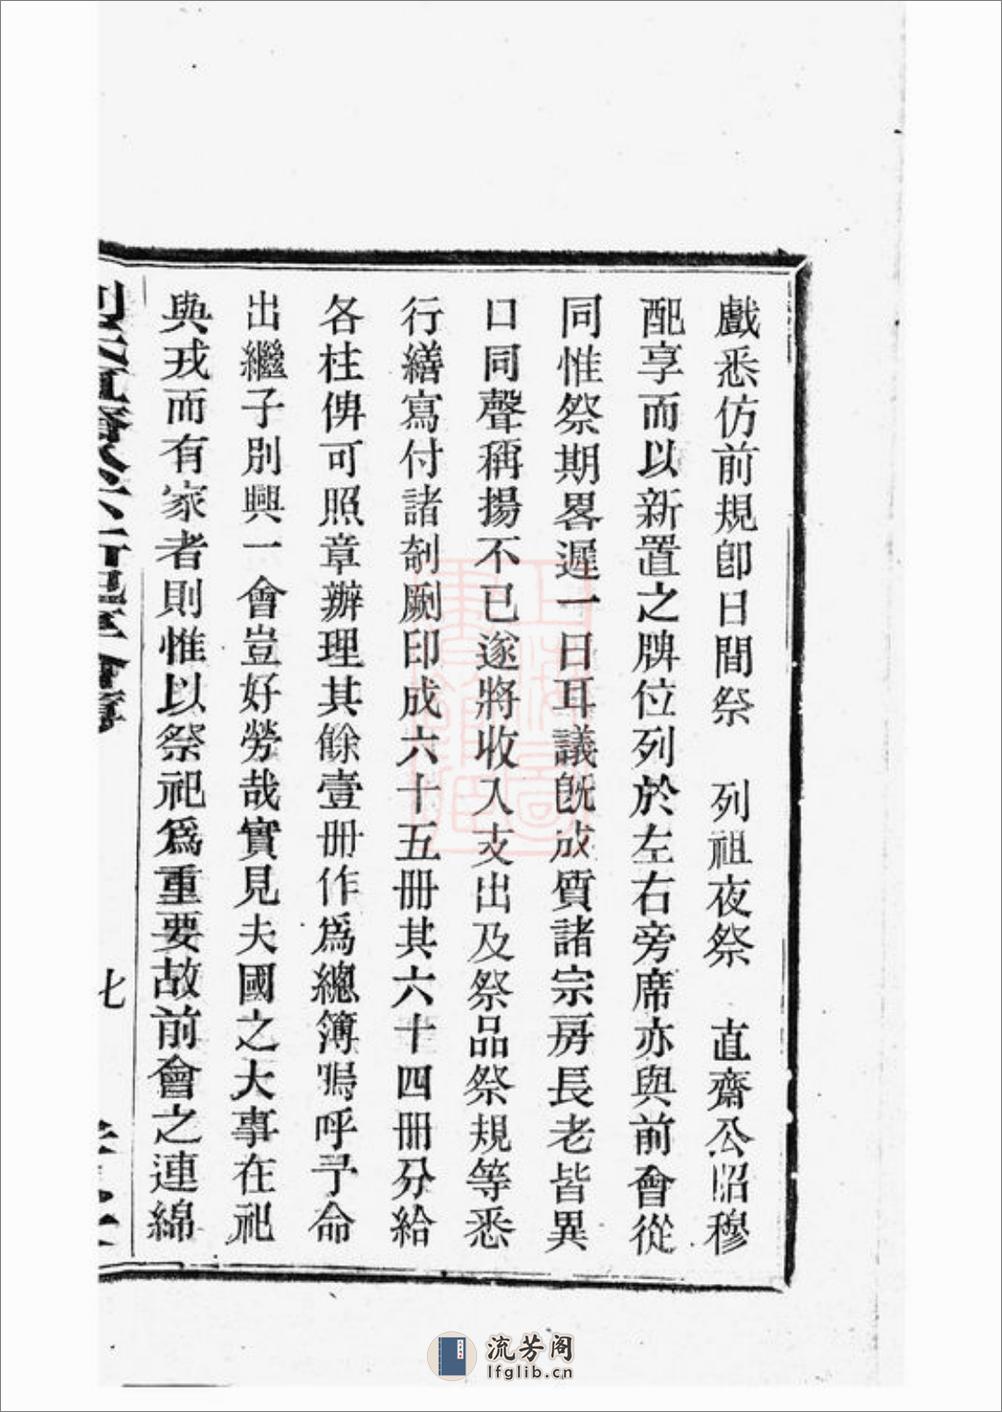 戲悉仿前規卽日間祭　列祖夜祭　直齋公昭穆
配享而以新置之牌位列於左右旁席亦與前會從
同惟祭期畧遲一日耳議旣成質諸宗房長老皆異
口同聲稱揚不已遂將收入支出及祭品祭規等悉
行繕寫付諸剞劂印成六十五冊其六十四冊分給
各柱俾可照章辦理其餘壹冊作爲總簿嗚呼予命
出繼子別興一會豈好勞哉實見夫國之大事在祀
與戎而有家者則惟以祭祀爲重要故前會之連綿
七
流芳阁
lfglib.cn